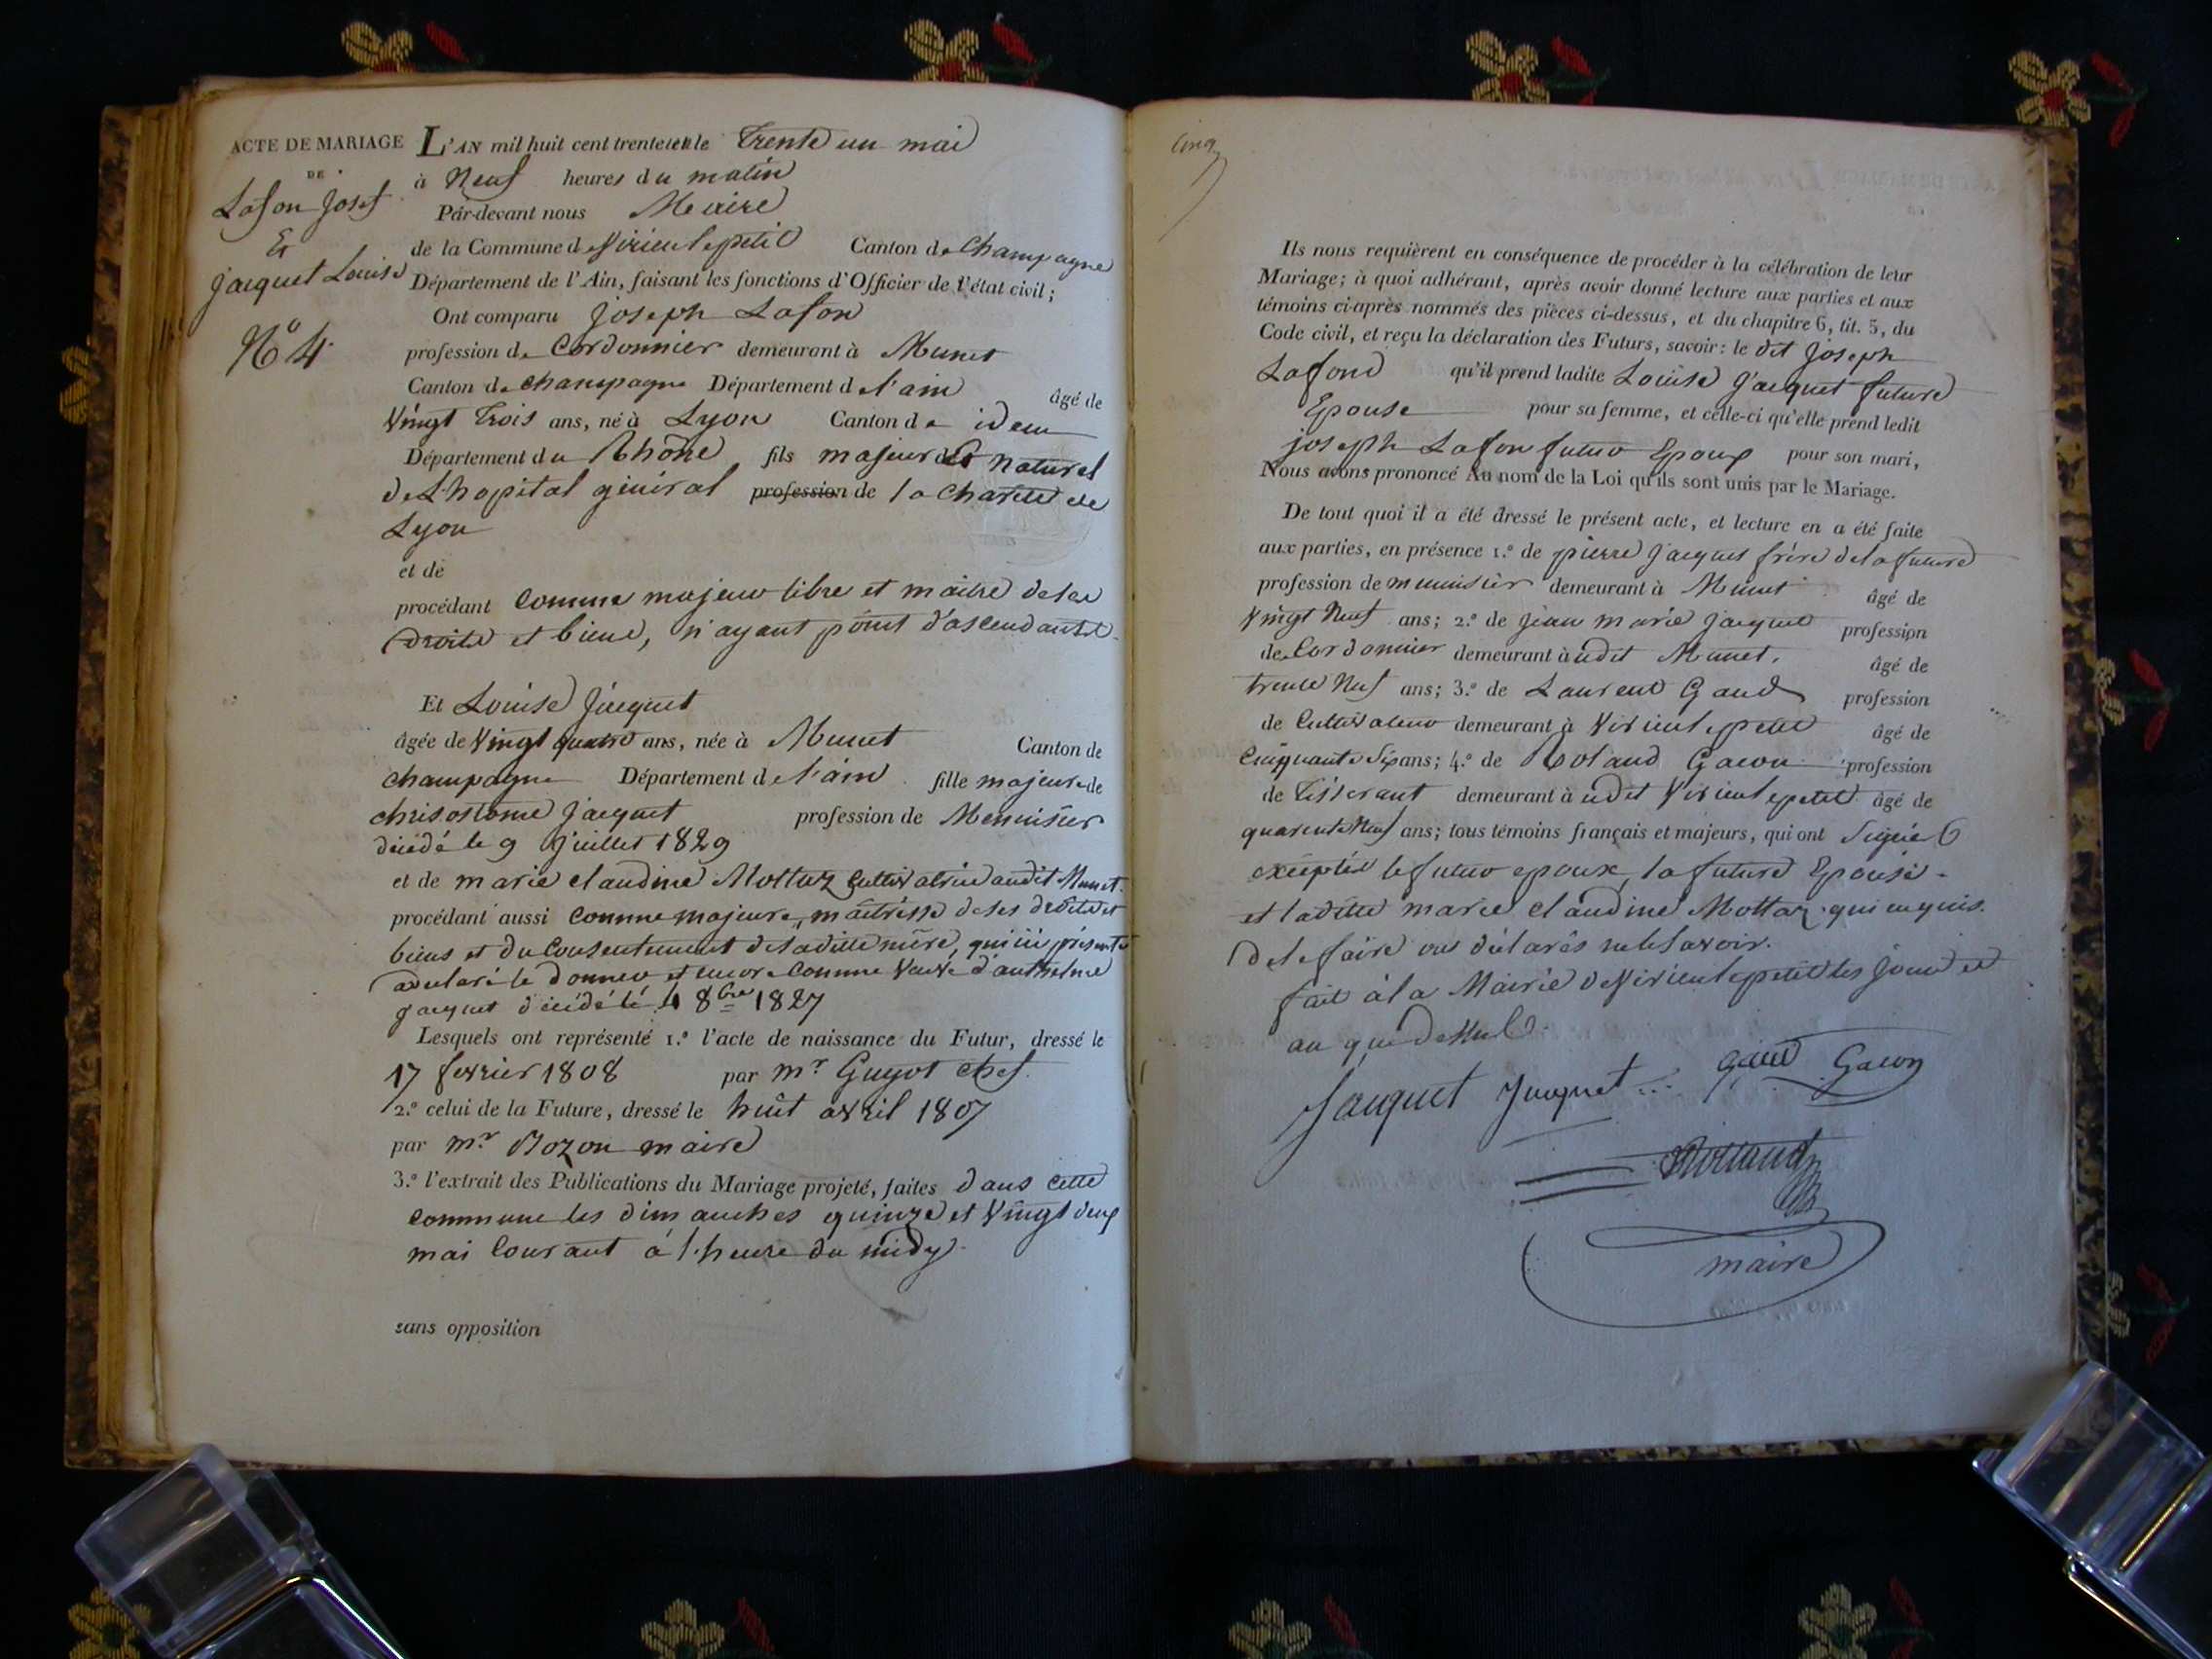 ACTE DE MARIAGE
DE
Lafon Josef
Et
Jacquet Louise
N.o 4.
L'AN mil huit cent trente un le Trente un mai
à Neuf heures du matin
Par-devant nous Maire
de la Commune de Virieu le petit Canton de Champagne
Département de l'Ain, faisant les fonctions d'Officier de l'état civil;
Ont comparu Joseph Lafon
profession de Cordonnier demeurant à Munet
Canton de champagne Département de l'ain âgé de
Vingt Trois ans, né à Lyon Canton de idem
Département du Rhône fils majeur et naturel
de L'hopital général profession de la Charité de
Lyon
et de
procédant Comme majeur libre et maitre de ses
Droits et biens, n'ayant point d'ascendants
Et Louise Jacquet
âgée de Vingt quatre ans, née à Munet Canton de
champagne Département de l'ain fille majeure de
chrisostome Jacquet profession de Menuisier
décédé le 9 Juillet 1829
et de marie claudine Mottaz Cultivatrice audit Munet.
procédant aussi Comme majeure, maitresse de ses droits et
biens et du Consentement de sa ditte mère, qui ici présente
a déclaré le donner et encore Comme veuve d'anthelme
Jacquet décédé le 4 8bre 1827
Lesquels ont représenté 1.º l'acte de naissance du Futur, dressé le
17 fevrier 1808 par mr Guyot Chef.
2.º celui de la Future, dressé le huit avril 1807
par mr Bozon maire
3.º l'extrait des Publications du Mariage projeté, faites dans cette
commune les dimanches quinze et Vingt deux
mai Courant à l'heure du midy.
sans opposition
Cinq
Ils nous requièrent en conséquence de procéder à la célébration de leur
Mariage; à quoi adhérant, après avoir donné lecture aux parties et aux
témoins ci-après nommés des pièces ci-dessus, et du chapitre 6, tit. 5, du
Code civil, et reçu la déclaration des Futurs, savoir: le dit Joseph
Lafond qu'il prend ladite Louise Jacquet future
Epouse pour sa femme, et celle-ci qu'elle prend ledit
joseph Lafon futur Epoux pour son mari,
Nous avons prononcé Au nom de la Loi qu'ils sont unis par le Mariage.
De tout quoi il a été dressé le présent acte, et lecture en a été faite
aux parties, en présence 1.º de pierre Jacquet frère de la future
profession de menuisier demeurant à Munet âgé de
Vingt Neuf ans; 2.º de Jean marie Jacquet profession
de Cordonnier demeurant à udit Munet. âgé de
trente Neuf ans; 3.º de Laurent Gaud profession
de Cultivateur demeurant à Virieu le petit âgé de
Cinquante Six ans; 4.º de Roland Gacon profession
de Tisserant demeurant à udit Virieu le petit âgé de
quarente Neuf ans; tous témoins français et majeurs, qui ont Signés
exceptés le futur epoux, la future Epouse
et la ditte marie claudine Mottaz qui enquis.
De le faire ont déclarés ne le Savoir.
fait à la Mairie de Virieu le petit les jour et
an que dessus.
Jacquet Jacquet Gaud Gacon
Rolland
maire